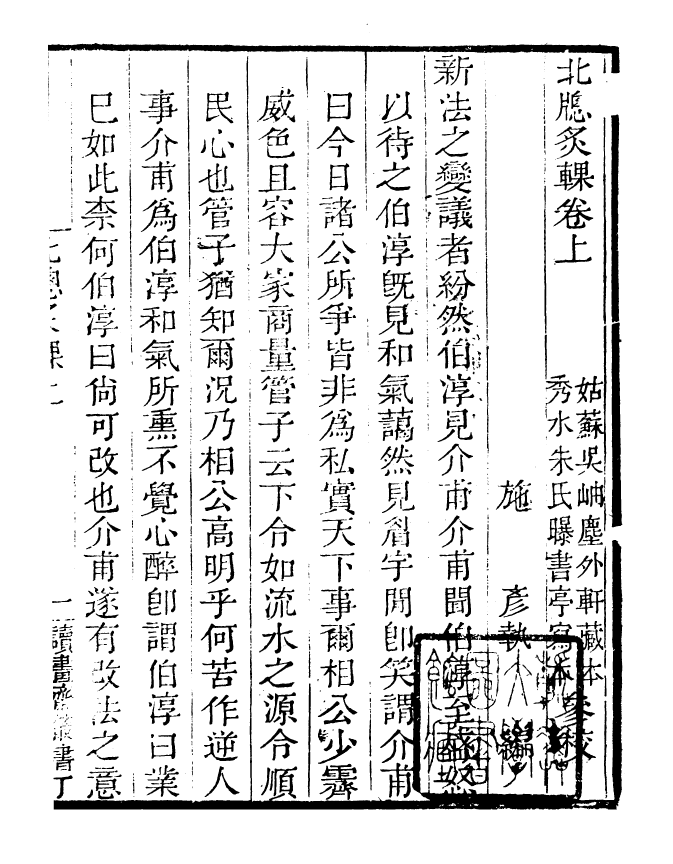 北牕炙輠卷上
姑蘇吳岫塵外軒藏本
秀水朱氏曝書亭寫本參校
施 彥執 編
新法之變議者紛然伯淳見介甫介甫聞伯淳至盛怒
以待之伯淳旣見和氣藹然見眉宇閒卽笑謂介甫
曰今日諸公所爭皆非爲私實天下事爾相公少霽
威色且容大家商量管子云下令如流水之源令順
民心也管子猶知爾況乃相公高明乎何苦作逆人
事介甫爲伯淳和氣所熏不覺心醉卽謂伯淳曰業
巳如此柰何伯淳曰尙可改也介甫遂有改法之意
一讀書齋叢書丁